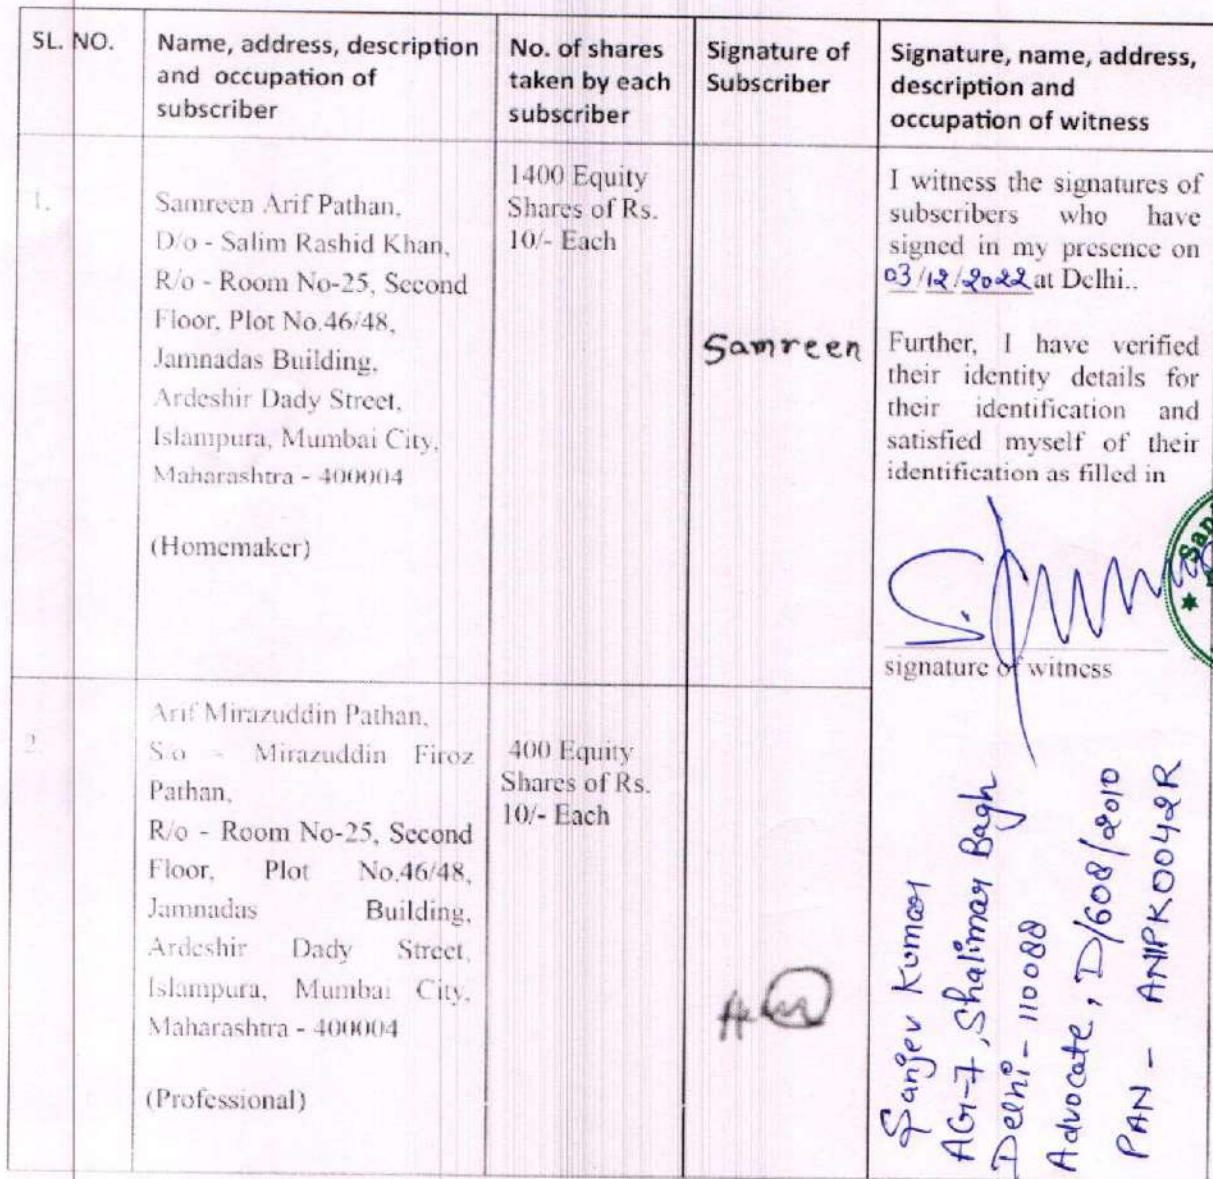 SL. NO.
Name, address, description
and occupation of
subscriber
No. of shares
taken by each
subscriber
Signature of
Subscriber
Signature, name, address,
description and
occupation of witness
1.
Samreen Arif Pathan,
D/o - Salim Rashid Khan,
R/o - Room No-25, Second
Floor, Plot No.46/48,
Jamnadas Building,
Ardeshir Dady Street,
Islampura, Mumbai City,
Maharashtra - 400004
(Homemaker)
1400 Equity
Shares of Rs.
10/- Each
Samreen
I witness the signatures of
subscribers who have
signed in my presence on
03/12/2022 at Delhi..
Further, I have verified
their identity details for
their identification and
satisfied myself of their
identification as filled in
signature of witness
2.
Arif Mirazuddin Pathan,
S/o - Mirazuddin Firoz
Pathan,
R/o - Room No-25, Second
Floor, Plot No.46/48,
Jamnadas Building,
Ardeshir Dady Street,
Islampura, Mumbai City,
Maharashtra - 400004
(Professional)
400 Equity
Shares of Rs.
10/- Each
Sanjev Kumar
AG-7, Shalimar Bagh
Delhi - 110088
Advocate, D/608/2010
PAN - ANIPK0042R